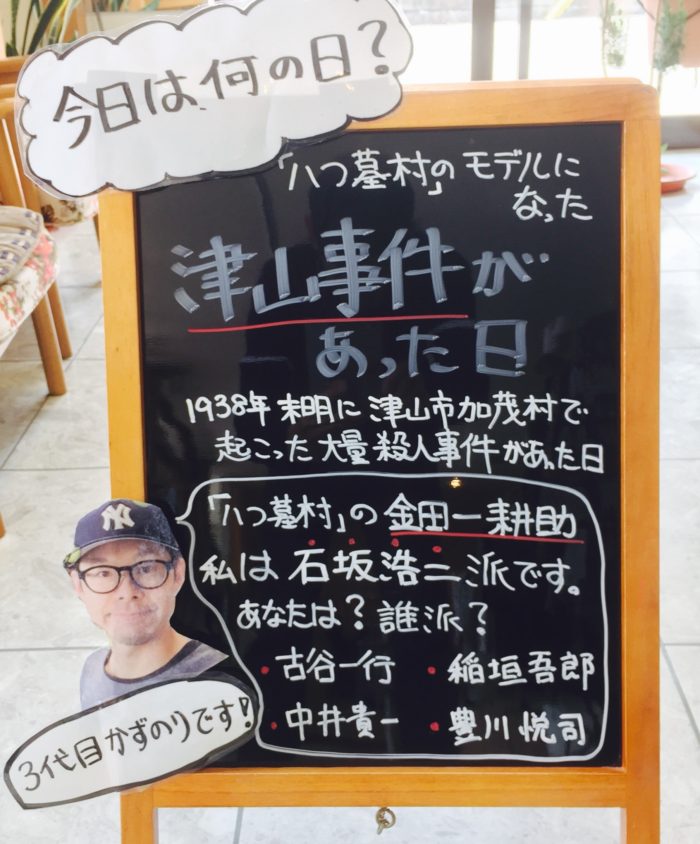 今日は何の日？
「八つ墓村」のモデルに
なった
津山事件が
あった日
1938年 未明に 津山市加茂村で
起こった 大量殺人事件があった日
「八つ墓村」の 金田一耕助
私は 石坂浩二 派です。
あなたは？ 誰派？
・古谷一行 ・稲垣吾郎
・中井貴一 ・豊川悦司
NY
3代目 かずのりです！